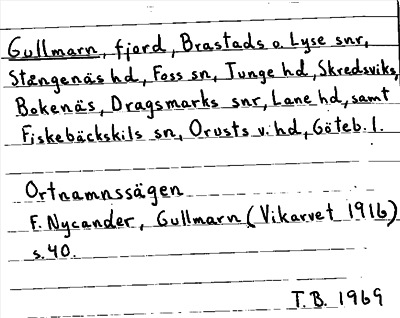 Gullmarn, fjord, Brastads o. Lyse snr,
Stångenäs hd, Foss sn, Tunge hd, Skredsviks,
Bokenäs, Dragsmarks snr, Lane hd, samt
Fiskebäckskils sn, Orusts v. hd, Göteb. l.
Ortnamnssägen
F. Nycander, Gullmarn (Vikarvet 1916)
s. 40.
T.B. 1969